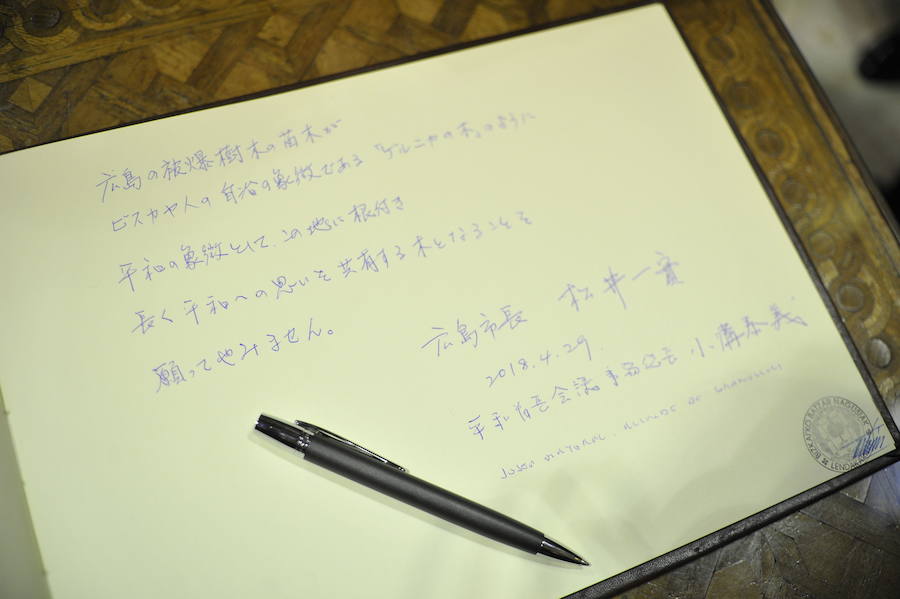 広島の被爆樹木の苗木が
ビスカヤ人の自治の象徴である「ゲルニカの木」のように
平和の象徴として、この地に根付き
長く平和への思いを共有する木となることを
願ってやみません。
広島市長 松井一實
2018.4.29.
平和首長会議事務総長 小溝泰義
BIZKAIKO BATZAR NAGUSIAK
LENDAKARI